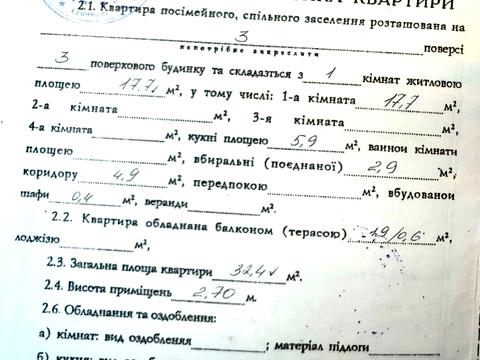 КВАРТИРИ
2.1. Квартира посімейного, спільного заселення розташована на
3 поверсі
непотрібне викреслити
3 поверхового будинку та складазться з 1 кімнат житловою
площею 17,7 м², у тому числі: 1-а кімната 17,7 м²,
2-а кімната м², 3-я кімната м²,
4-а кімната м², кухні площею 5,9 м², ванної кімнати
площею м², вбиральні (поєднаної) 2,9 м²,
коридору 4,9 м², передпокою м², вбудованої
шафи 0,4 м², веранди м².
2.2. Квартира обладнана балконом (терасою) 1,9/0,6 м²,
лоджією м²,
2.3. Загальна площа квартири 32,4 м².
2.4. Висота приміщень 2,70 м.
2.6. Обладнання та оздоблення:
а) кімнат: вид оздоблення ; матеріал підлоги